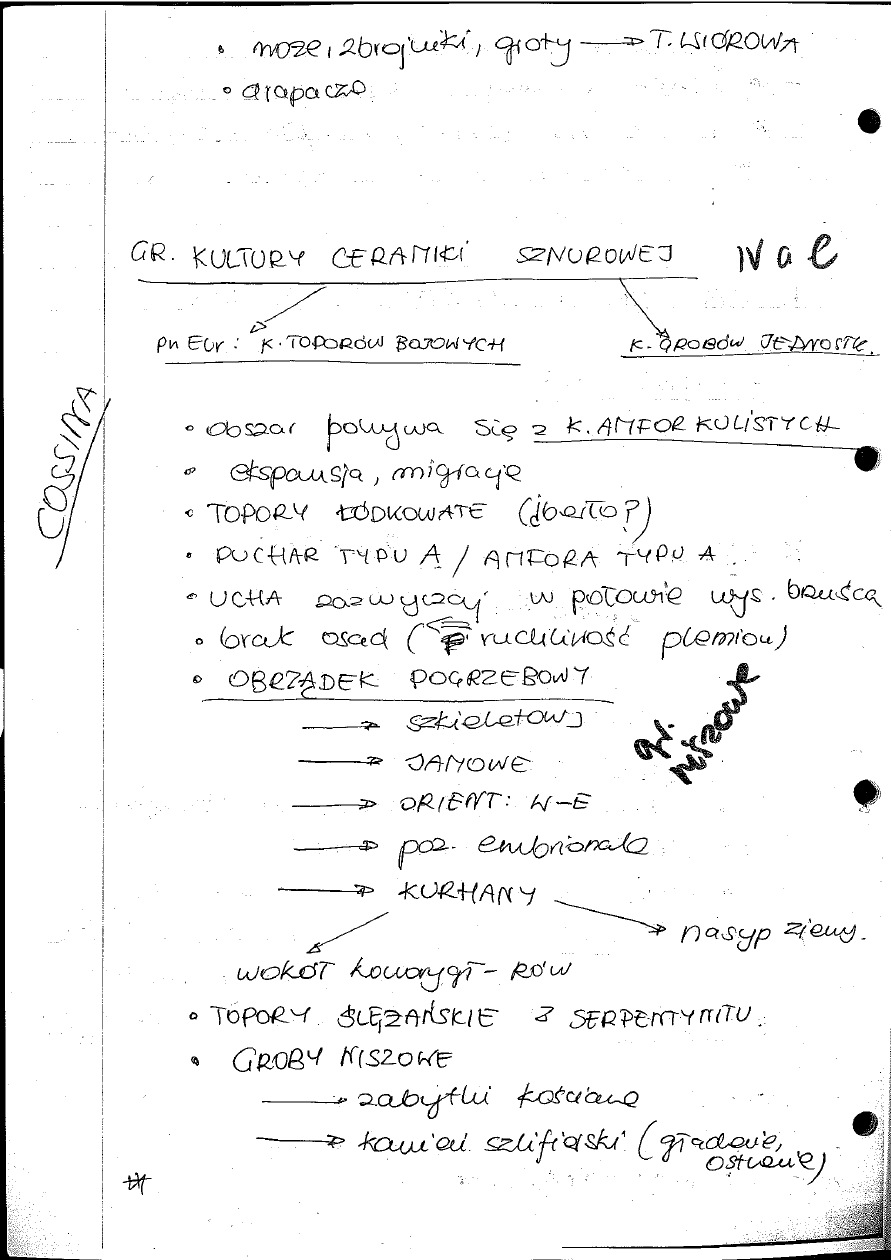 • noże, zbrojniki, groty → T. WIÓROWA
• drapacze
GR. KULTURY CERAMIKI SZNUROWEJ IV a C
pn Eur: K. TOPORÓW BOJOWYCH
K. GROBÓW JEDNOSTK.
COSSINA
• obszar pokrywa się z K. AMFOR KULISTYCH
• ekspansja, migracje
• TOPORY ŁÓDKOWATE (berło?)
• PUCHAR TYPU A / AMFORA TYPU A
• UCHA zazwyczaj w połowie wys. brzuśca
• brak osad ( ruchliwość plemion)
• OBRZĄDEK POGRZEBOWY
→ szkieletowy
gr. niszowe
→ JAMOWE
→ ORIENT: W-E
→ poz. embrionalna
→ KURHANY
→ nasyp ziemny.
wokół rów
• TOPORY ŚLĘŻAŃSKIE Z SERPENTYNITU.
• GROBY NISZOWE
→ zabytki kościane
→ kamień szlifierski (gładzenie,
ostrzenie)